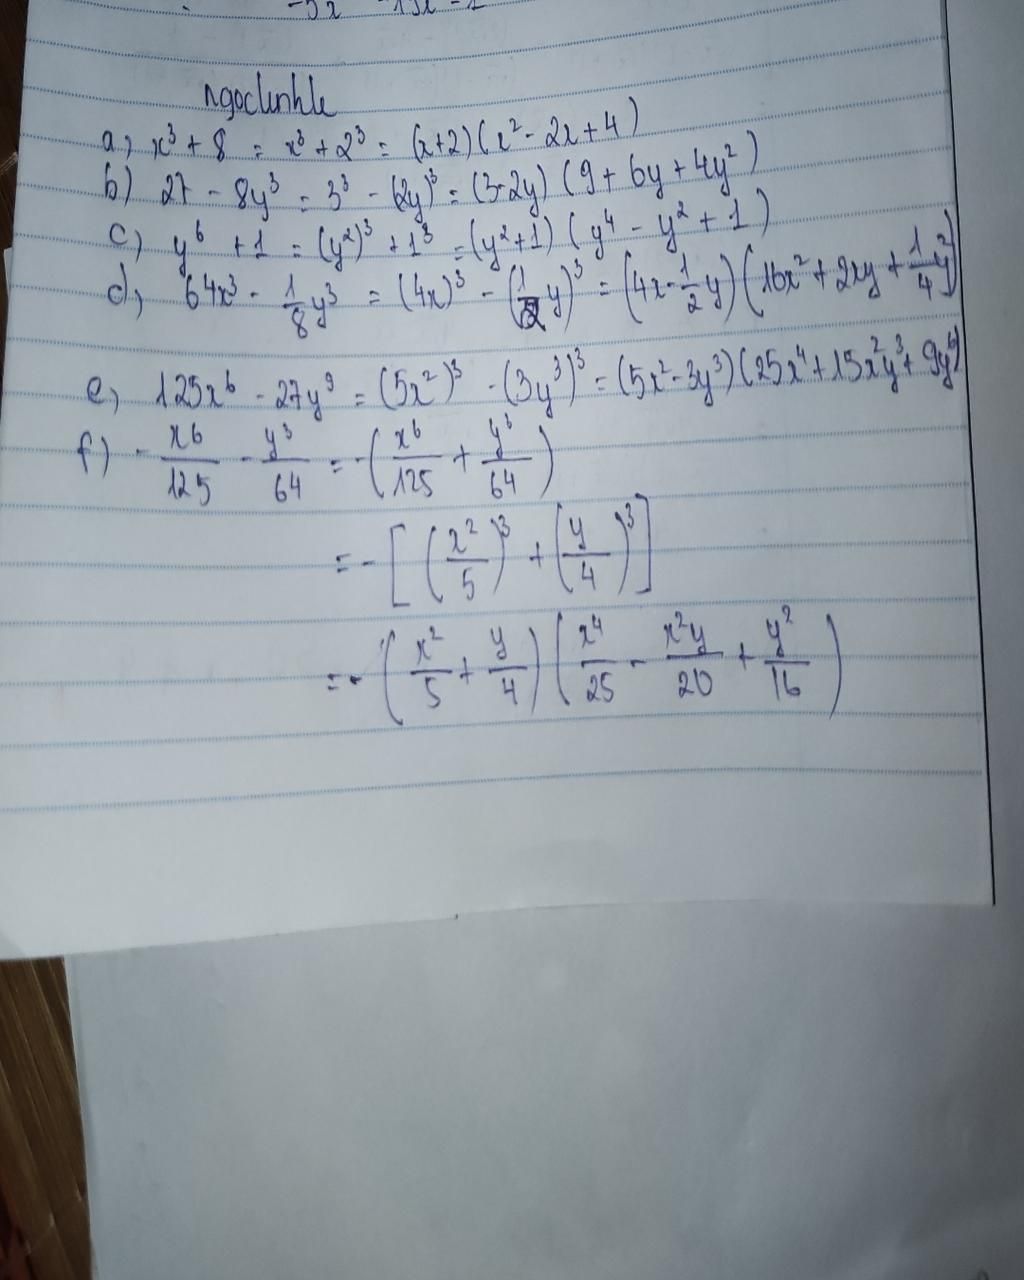 ngoclinhle
a, x³ + 8 = x³ + 2³ = (x+2)(x² - 2x + 4)
b) 27 - 8y³ = 3³ - (2y)³ = (3-2y) (9 + 6y + 4y²)
c) y⁶ + 1 = (y²)³ + 1³ = (y²+1) (y⁴ - y² + 1)
d, 64x³ - 1/8 y³ = (4x)³ - (1/2 y)³ = (4x - 1/2 y)(16x² + 2xy + 1/4 y²)
e, 125x⁶ - 27y⁹ = (5x²)³ - (3y³)³ = (5x² - 3y³)(25x⁴ + 15x²y³ + 9y⁶)
f) - x⁶/125 - y³/64 = -(x⁶/125 + y³/64)
= - [(x²/5)³ + (y/4)³]
= - (x²/5 + y/4)(x⁴/25 - x²y/20 + y²/16)